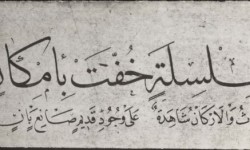 بِسِلْسِلَةٍ خُفَّتْ بِامْكَانِ
وَالْاَرْكَانُ شَاهِدَةٌ عَلَى وُجُودِ قَدِيمٍ صَانِعٍ